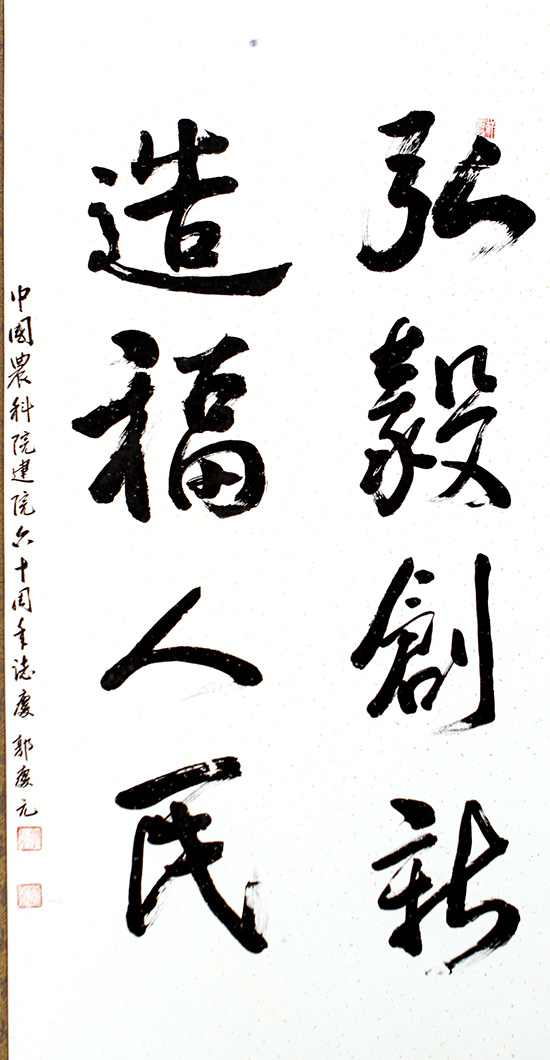 弘毅創新
造福人民
中國農科院建院六十周年誌慶 郭慶元